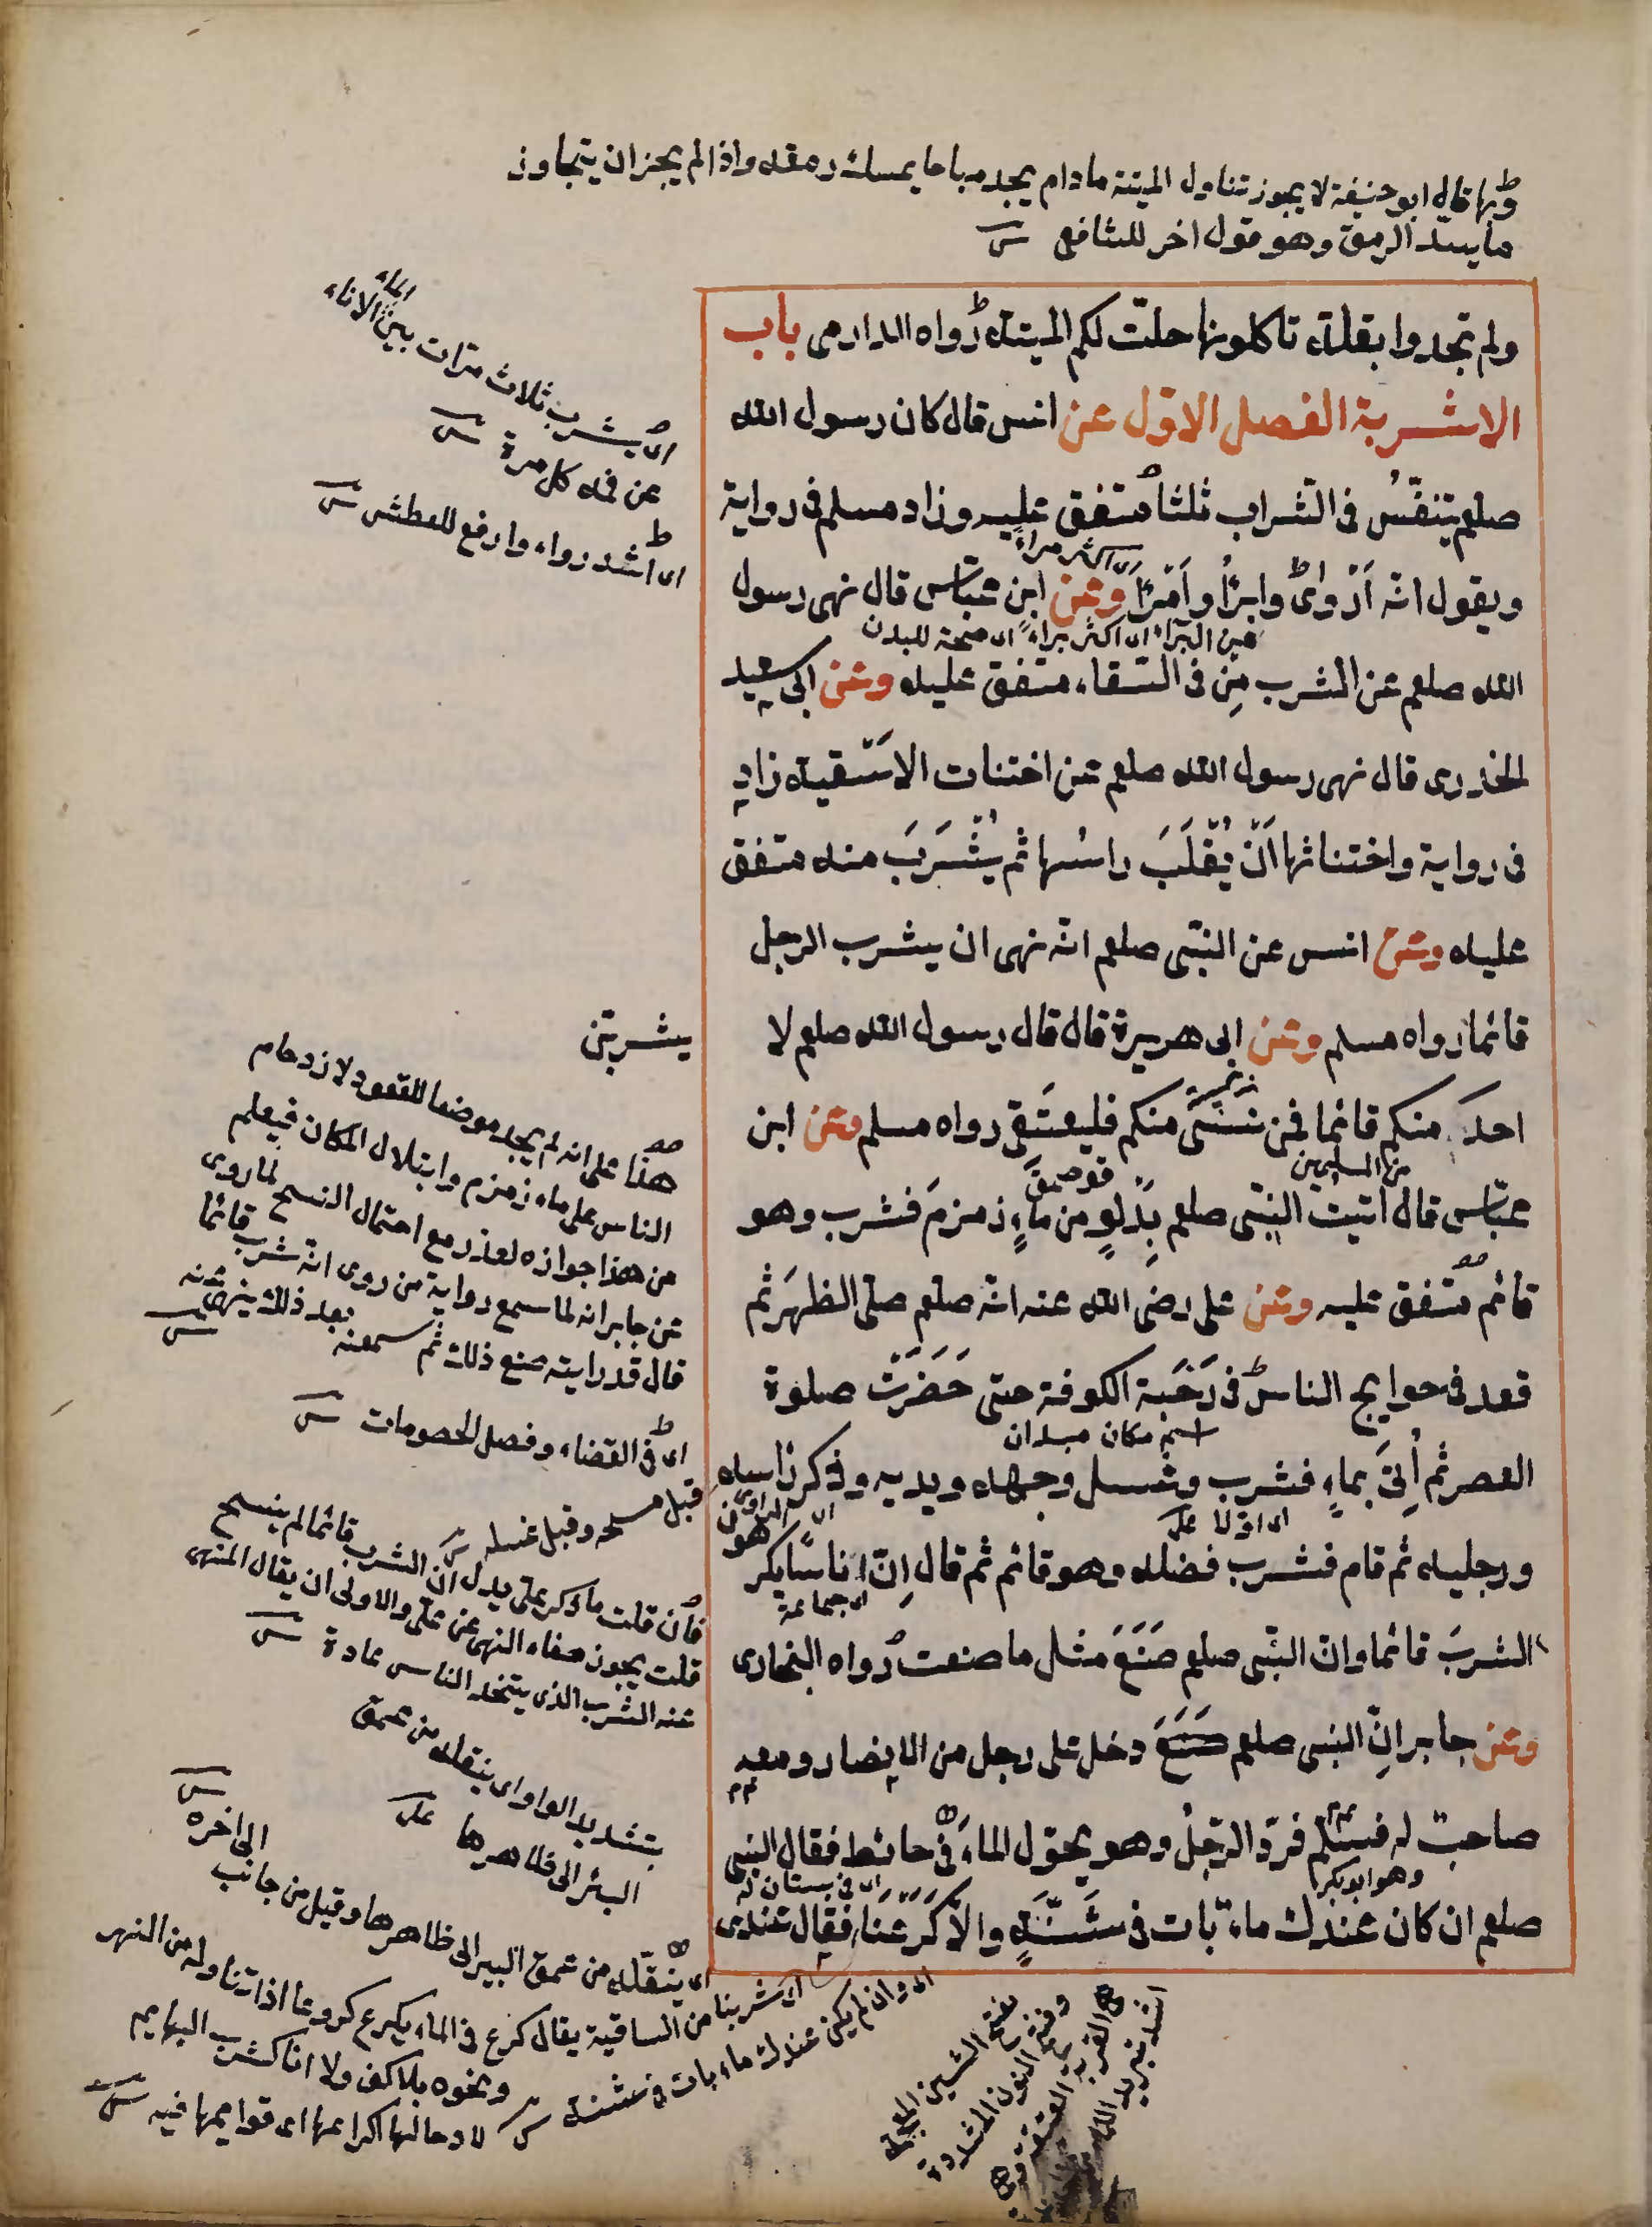 وبها قال ابو حنيفة لا يجوز تناول الميتة مادام يجد مباحا يمسك رمقه واذا لم يجز ان يتجاوز
ما يسد الرمق وهو قول اخر للشافعي
ولم تجدوا بقلة تاكلونها حلّت لكم الميتة رواه الدارمى باب
الاشربة الفصل الاوّل عن انس قال كان رسول الله
صلعم يتنفّسُ فى الشراب ثلثا متفق عليه وزاد مسلم فى رواية
ويقول انّه اَرْوٰى وابرأُ واَمْرَأُ وعن ابن عبّاس قال نهى رسول
الله صلعم عن الشرب مِن فى السّقاء متفق عليه وعن ابى سعيد
الخدرى قال نهى رسول الله صلعم عن اختناث الاَسْقية زاد
فى رواية واختناثها اَنْ يُقْلَبَ راسُها ثم يُشْرَبَ منه متفق
عليه وعن انس عن النبّى صلعم انّه نهى ان يشرب الرجل
قائما رواه مسلم وعن ابى هريرة قال قال رسول الله صلعم لا
احدَ منكم قائما فمن نَسِىَ منكم فليستَقِى رواه مسلم وعن ابن
عبّاس قال اتيت النبّى صلعم بِدَلوٍ من ماءٍ زمزمَ فشرب وهو
قائم متفق عليه وعن على رضى الله عنه انّه صلعم صلّى الظهرَ ثم
قعد فى حوايج الناس فى رَحَبة الكوفة حتى حَضَرَتْ صلوة
العصر ثم اُتِىَ بماءٍ فشرب وغسل وجهه ويديه وذكر راسه
ورجليه ثم قام فشرب فضله وهو قائم ثم قال اِنّ اناسًا يكر هون
الشربَ قائما وانّ النبّى صلعم صَنَعَ مثل ما صنعت رواه البخارى
وعن جابر انّ النبى صلعم صَنَعَ دخل على رجل من الانصار ومعه
صاحبٌ له فسلم فردّ الرّجلُ وهو يحوّل الماءَ فى حائط فقال النبى
صلعم ان كان عندك ماءٌ بات فى شَنَّةٍ والاّ كَرَعْنَا فقال عندى
اى اكثر مراء
من البراء اى اكثر براء اى صحة للبدن
من المسلمين
اسم مكان ميدان
اى اوّلا
اى الراوى
اى جماعة
وهو ابو بكر
اى فى بستان له
الماء
اى يشرب ثلاث مرّات بين الاناء
عن فمه كل مرة
اى اشد رواء وارفع للعطش
يشربَنّ
هذا على انه لم يجد موضعا للقعود لازدحام
الناس على ماء زمزم وابتلال المكان فيعلم
من هذا جوازه لعذر مع احتمال النسخ لما روى
عن جابر انه لما سمع رواية من روى انّه شرب قائما
قال قد رايته صنع ذلك ثم سمعته بعد ذلك ينهى عنه
اى فى القضاء وفصل الخصومات
قبل مسحه وقبل غسله
فان قلت ما ذكر على يدل ان الشرب قائما لم ينسخ
قلت يجوز خفاء النهى عن على والاولى ان يقال المنهى
عنه الشرب الذى يتخذ الناس عادة
بتشديد الواو اى ينقله من عمق
البئر الى ظاهرها
اى ينقله من عمق البير الى ظاهرها وقيل من جانب
الى اخره
اى شربنا من الساقية يقال كرع فى الماء يكرع كروعا اذا تناوله من النهر
ونحوه بلا كف ولا اناء كشرب البهايم
لادخالها اكراعها اى قوايمها فيه
اى وان لم يكن عندك ماء بات فى شنة
بفتح الشين المعجمة
وفتح النون المشددة
القربة العتيقة
اشد تبريد الماء